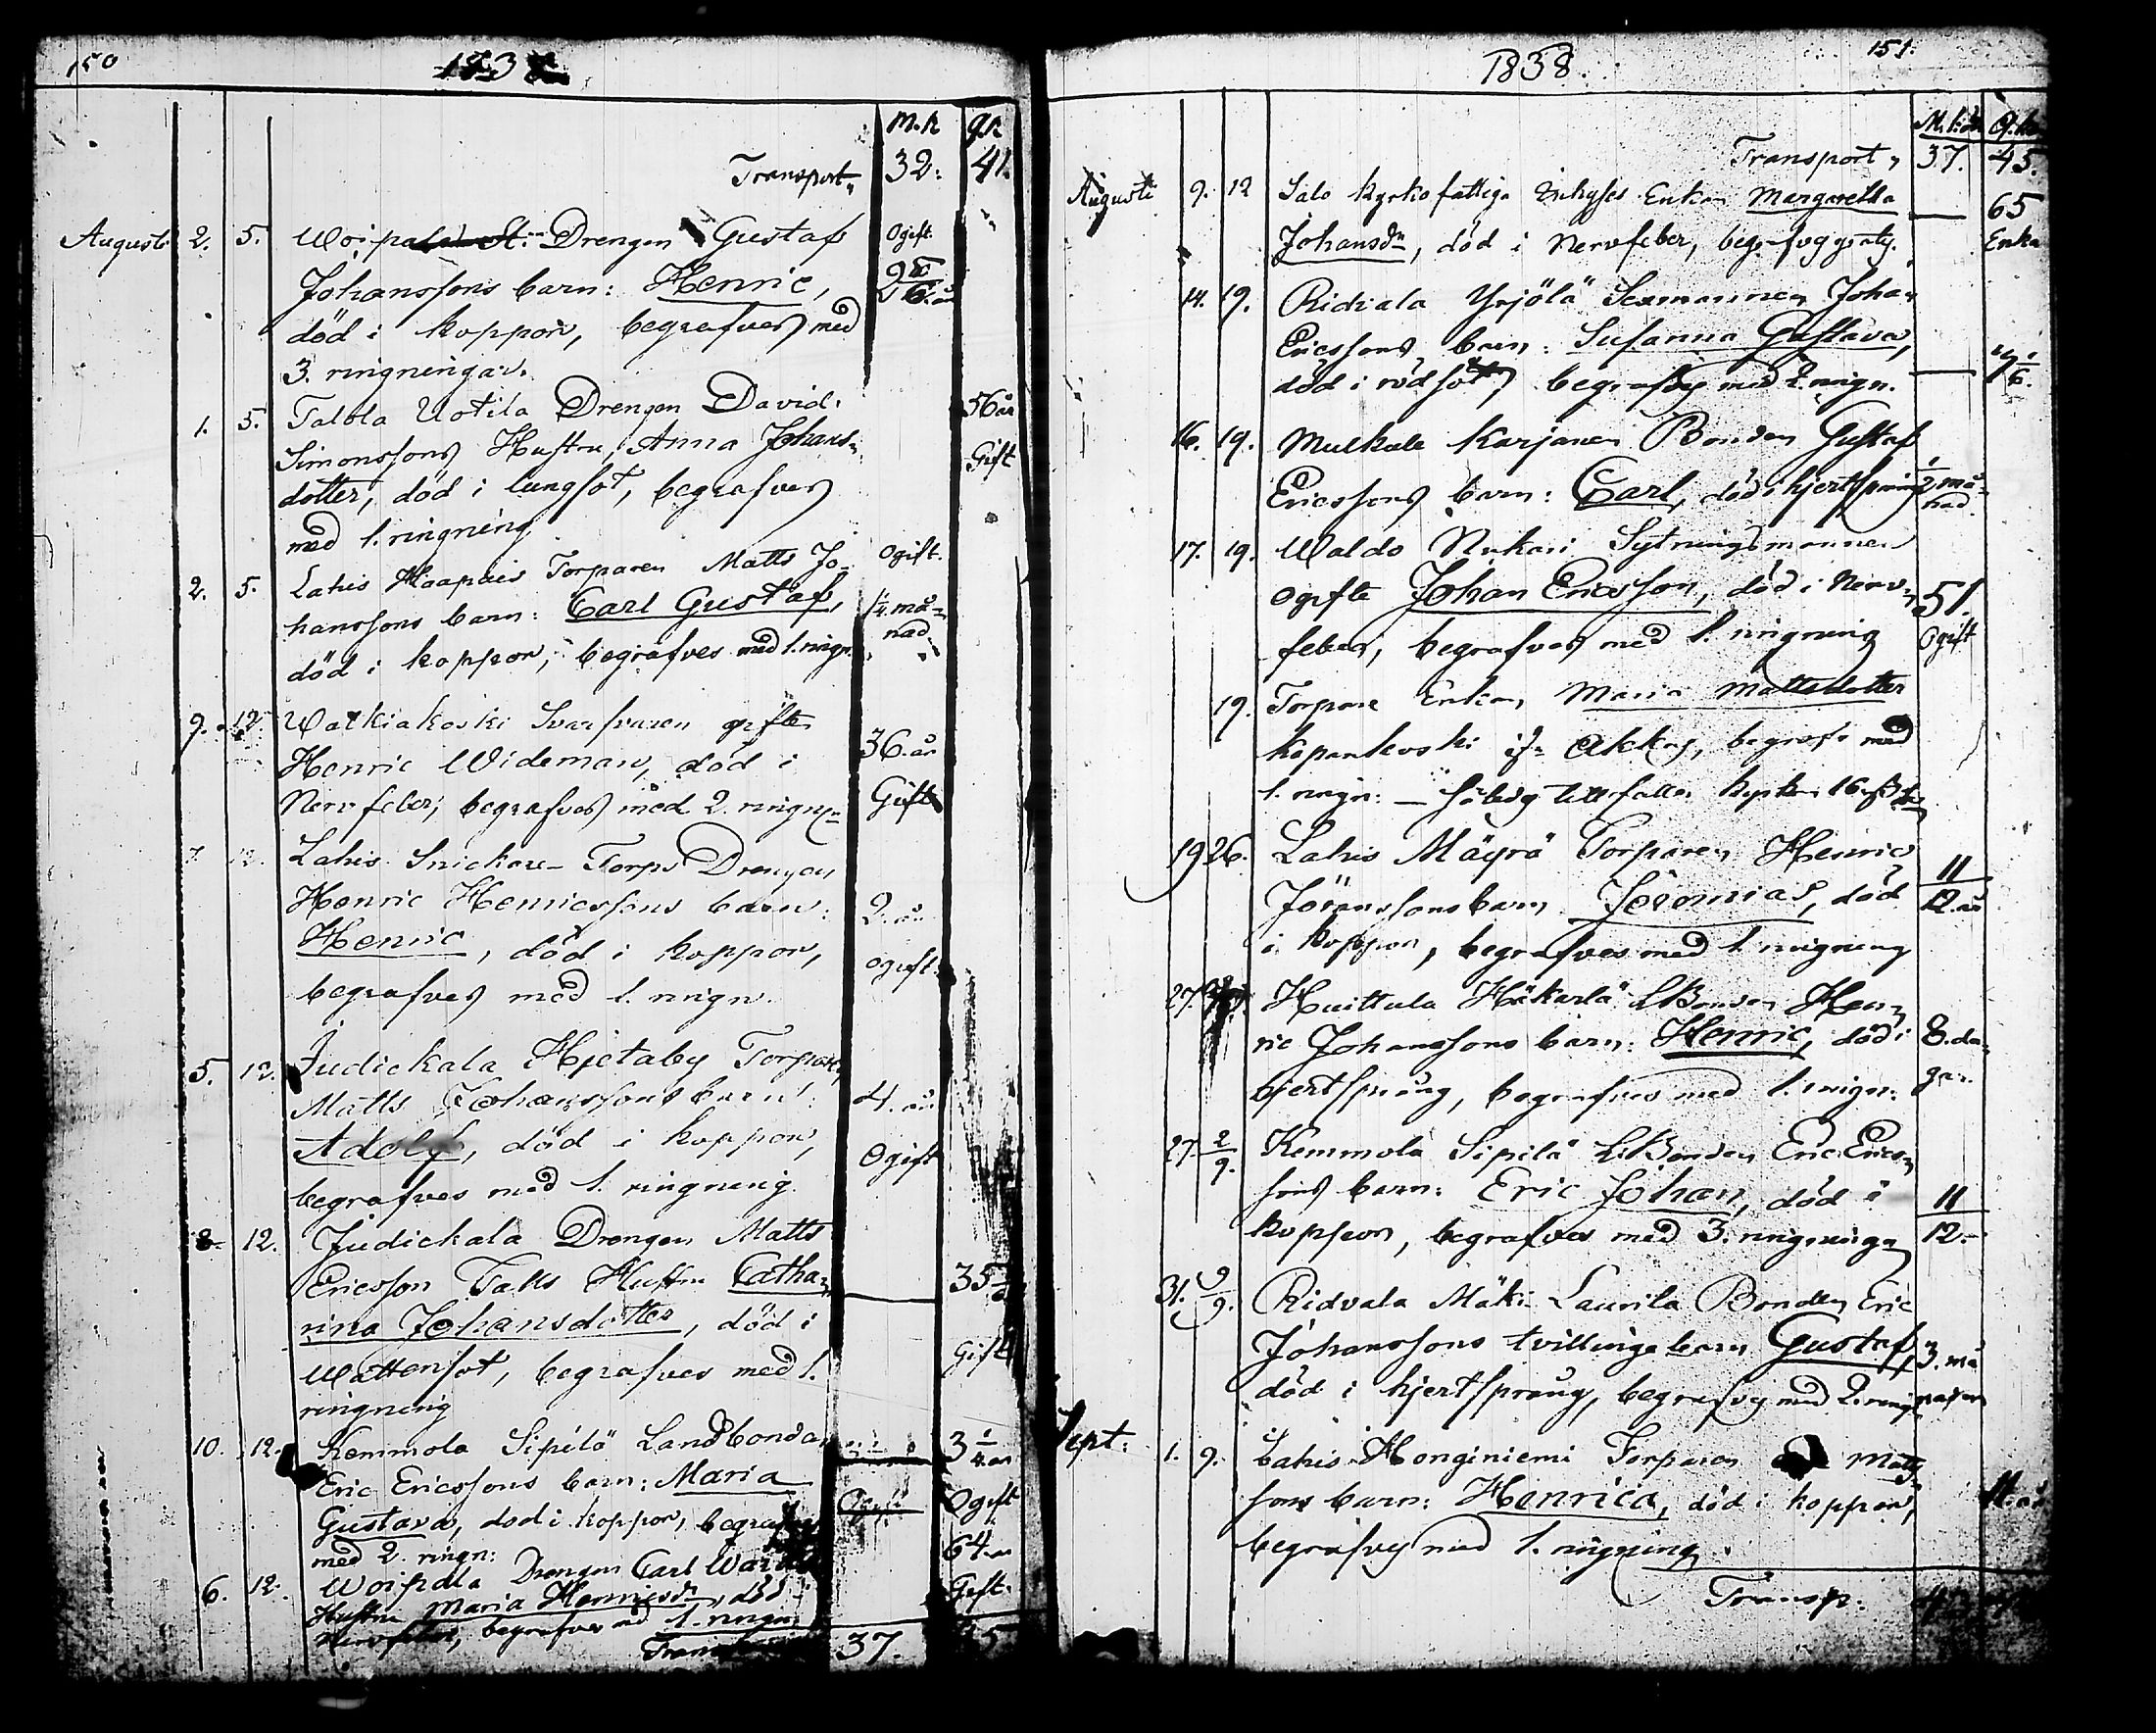 150
1838
M.k. Q.k.
Transport, 32. 41.
Augusti 2. 5. Woipala Drengen Gustaf Ogift.
Johanssons barn: Henric,
död i koppor, begrafves med
3. ringningar.
1. 5. Talola Uotila Drengen David 56 år
Simonssons Hustru, Anna Johans- Gift
dotter, död i lungsot, begrafves
med 1. ringning
2. 5. Lahis Haapais Torparen Matts Jo- Ogift.
hanssons barn: Carl Gustaf, må-
död i koppor, begrafves med 1. ringn. nad.
9. 12. Walkiakoski Svarfvaren gifte
Henric Wideman, död i 36. år
Nervfeber, begrafves med 2. ringn. Gift
7. 12. Lahis Snickare Torps Drengen
Henric Henricssons barn: 2. år
Henric, död i koppor, ogift.
begrafves med 1. ringn.
5. 12. Judickala Hjetaby Torpare
Matts Johanssons barn: 4. år
Adolf, död i koppor, Ogift
begrafves med 1. ringning.
8. 12. Judickala Drengen Matts
Ericsson Taks Hustru Catha- 35
rina Johansdotter, död i
Wattensot, begrafves med 1. Gift
ringning
10. 12. Kemmola Sipilä Landbonden 3 1/4 år
Eric Ericssons barn: Maria
Gustava, död i koppor, begrafves Ogift
med 2. ringn:
6. 12. Woipala Drengen Carl 64 år
Hustru Maria Henricsdr, död i Gift.
Nervfeber, begrafves med 1. ringn.
37.
151.
1838.
M.kön Q.k.
Transport, 37. 45.
Augusti 9. 12 Salo kyrkofattiga Inhyses Enkan Margaretha — 65
Johansdr, död i Nervfeber, Enka
14. 19. Ridvala Yrjölä Johan
Ericssons barn: Susanna Gustava,
död i rödsot, begrafves med 2. ringn. —
16. 19. Mulkula Karjanen Bonden Gustaf
Ericssons barn: Carl, död i hjertsprång 1/2 må-
nad.
17. 19. Waldo Nukari Sytningsmannen
ogifte Johan Ericsson, död i Nerv- 51.
feber, begrafves med 1. ringning Ogift
19. Torpare Enkan Maria Mattsdotter
ifr. Akkas, begrafs med
1. ringn: —
19 26. Lahis Mäyrä Torparen Henric 11
Jöranssons barn Jeremias, död 12. år
i koppor, begrafves med 1. ringning
27. Huittula Häkärlä LBonden Hen-
ric Johanssons barn: Henric, död i 8. da-
hjertsprång, begrafves med 1. ringn. gar.
27. 2/9. Kemmola Sipilä LBonden Eric Erics-
sons barn: Eric Johan, död i 11
koppor, begrafves med 3. ringningar 12.
31. 9/9. Ridvala Mäki Laurila Bonden Eric
Johanssons tvillinge barn Gustaf, 3. må
död i hjertsprång, begrafves med 2. ringn. nader
Sept: 1. 9. Lahis Honginiemi Torparen Matts-
sons barn: Henrica, död i koppor,
begrafves med 1. ringning.
Transp.